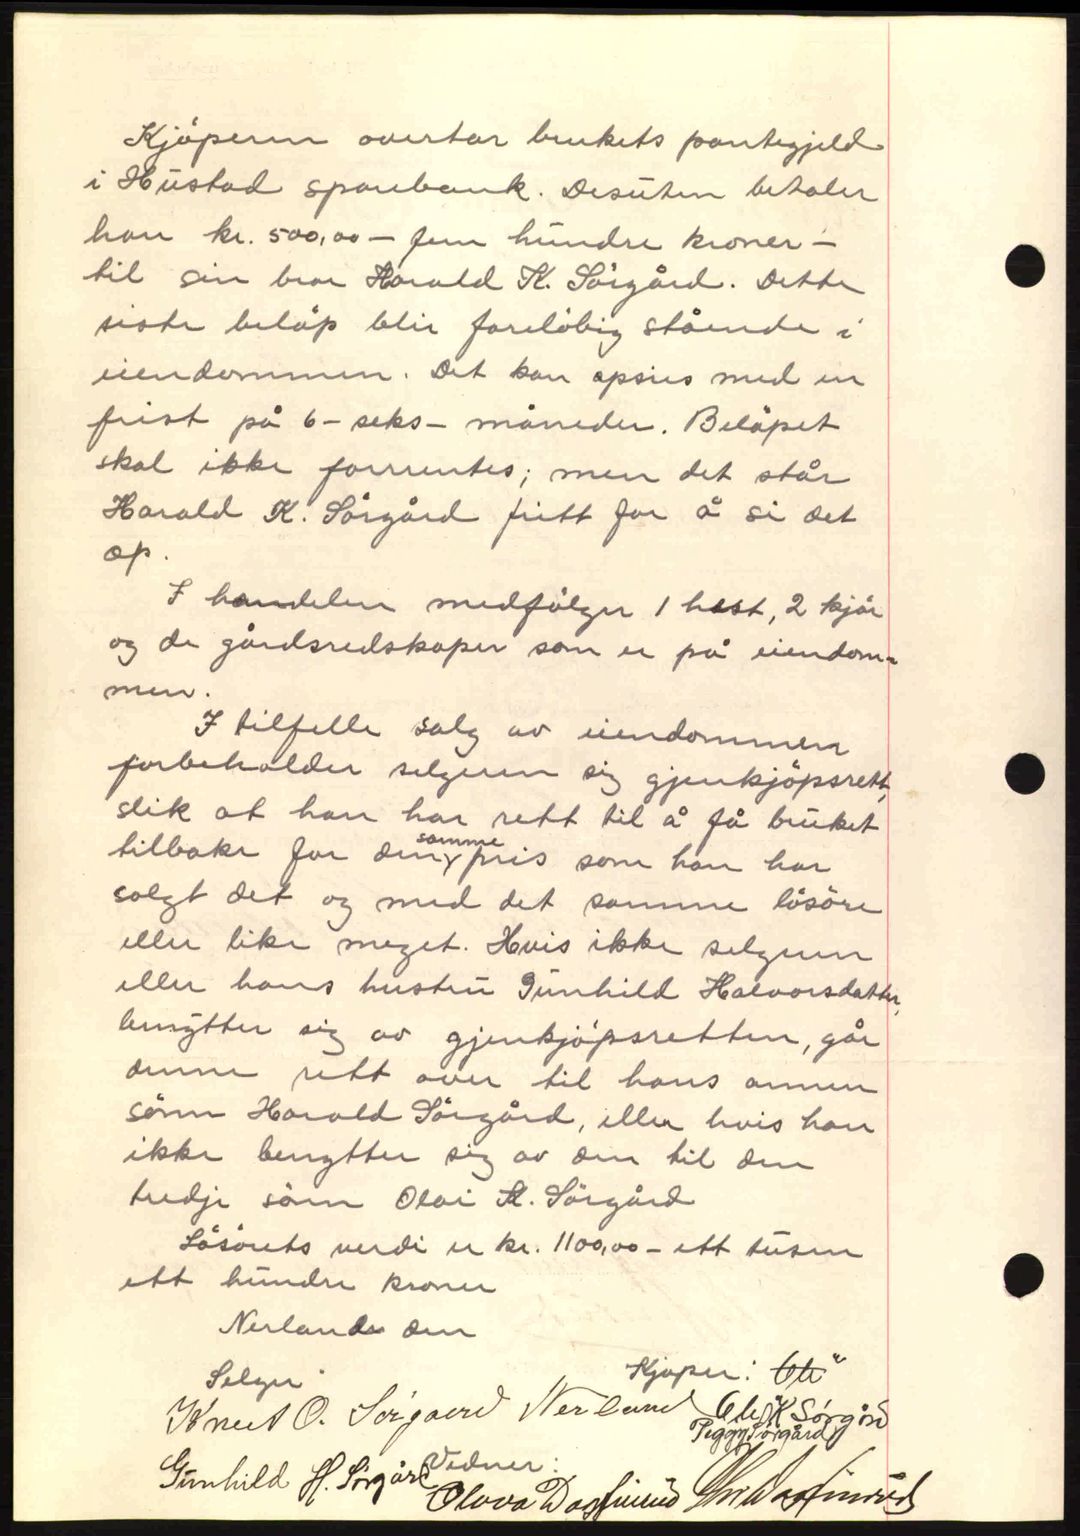 Kjöperen overtar brukets pantegjeld
i Hustad sparebank. Desuten betaler
han kr. 500,00 – fem hundre kroner –
til sin bror Harald K. Sörgård. Dette
siste belöp blir foreløbig stående i
eiendommen. Det kan opsies med en
frist på 6 – seks – måneder. Belöpet
skal ikke forrentes; men det står
Harald K. Sörgård fritt for å si det
op.
I handelen medfölger 1 hest, 2 kjör
og de gårdsredskaper som er på eiendom-
men.
I tilfelle salg av eiendommen
forbeholder selgeren sig gjenkjöpsrett,
slik at han har rett til å få bruket
tilbake for den samme pris som han har
solgt det og med det samme lösöre
eller like meget. Hvis ikke selgeren
eller hans hustru Gunhild Halvorsdatter,
benytter sig av gjenkjöpsretten, går
denne rett over til hans annen
sönn Harald Sörgård, eller hvis han
ikke benytter sig av den til den
tredje sönn Olai K. Sörgård
Lösörets verdi er kr. 1100,00 – ett tusen
ett hundre kroner
Nerland den
Selger Kjøper: Ole
Knut O. Sørgaard Nerland Ole K Sørgård
Peggy Sørgård
Gunhild H. Sørgård Vidner:
Olova Dasfinrud